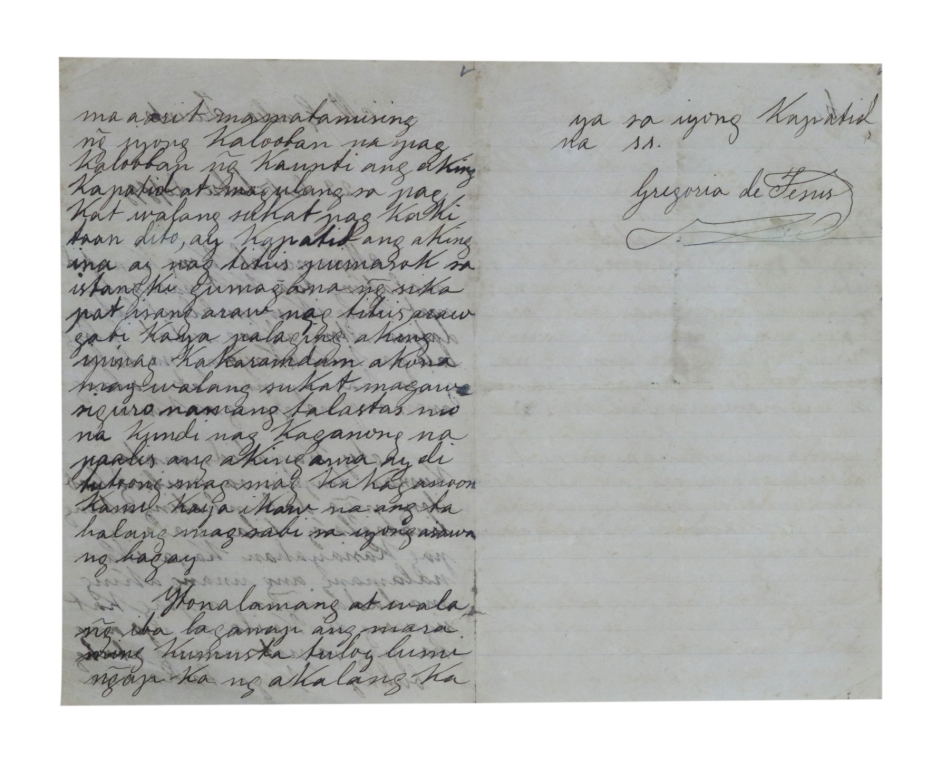 maaarit mamatamising
ng̃ iyong Kalooban na pag
Kalooban ng̃ Kaunti ang aking
Kapatid at magulang sa pag
Kat walang sukat pag Kaki
taan dito, ay Kapatid ang aking
ina ay nag titiis pumasok sa
istanghi gumagana ng̃ sika
pat isang araw nag titiis araw
gabi Kaya palaging aking
ipinag Kakaramdam ako na
may walang sukat magawa
siguro namang talastas mo
na Kundi nag Kaganong na
paalis ang aking ama ay di
totoong mag mag Ka Kaganoon
Kami Kaya ikaw na ang ba
halang mag sabi sa iyong asawa
ng bagay
Ytonalamang at wala
ng̃ iba laganap ang mara
ming Kumusta tuloy lumi
ng̃ap Ka ng aKalang Ka
ya sa iyong Kapatid
na ss.
Gregoria de Jesus